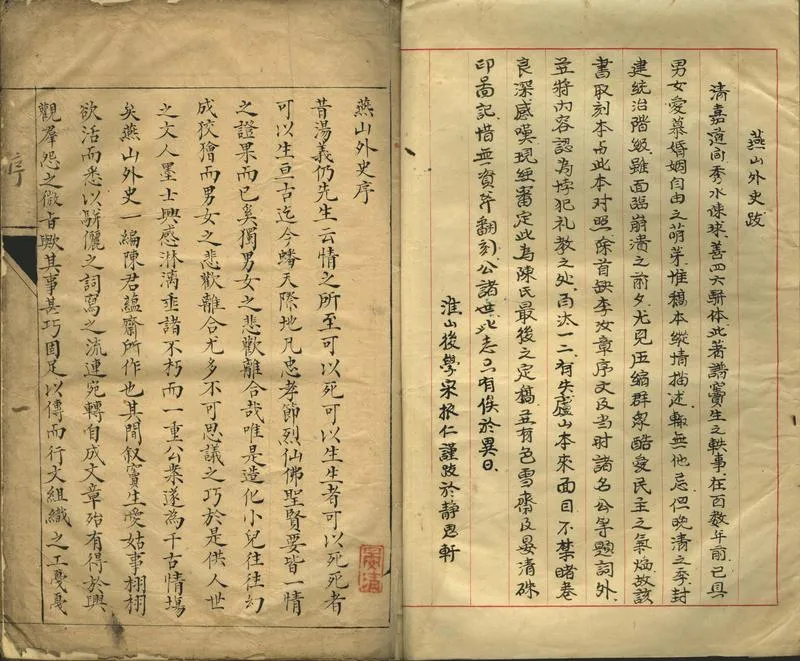 燕山外史跋
清嘉道间秀水陳球善四六駢体此著譔竇生之軼事在百数年前已具
男女愛慕婚姻自由之萌芽惟稿本縱情描述輒無他忌但晚清之季封
建統治階级雖面臨崩潰之前夕尤見压缩群眾酷愛民主之氣焰故該
書取刻本与此本对照除首缺李汝章序文及当时諸名公等题詞外
並将內容認為悖犯礼教之处而汰一二有失廬山本來面目不禁睹卷
良深感嘆現經審定此為陳氏最後之定稿並有色雪齋及晏清硃
印啚記惜無資斧翻刻公諸世此志只有俟於異日.
淮山後學宋振仁謹跋於静思軒
燕山外史序
昔湯義仍先生云情之所至可以死可以生生者可以死死者
可以生亘古迄今蟠天際地凡忠孝節烈仙佛聖賢要皆一情
之證果而已奚獨男女之悲歡離合哉唯是造化小兒往往幻
成狡獪而男女之悲歡離合尤多不可思議之巧於是供人世
之文人墨士興感淋漓垂諸不朽而一重公案遂為千古情場
矣燕山外史一編陳君蘊齋所作也其間叙竇生愛姑事栩栩
欲活而悉以駢儷之詞寫之流連宛轉自成文章殆有得於興
觀羣怨之微旨歟其事甚巧固足以傳而行文組織之工戞戞
序
一
晏清